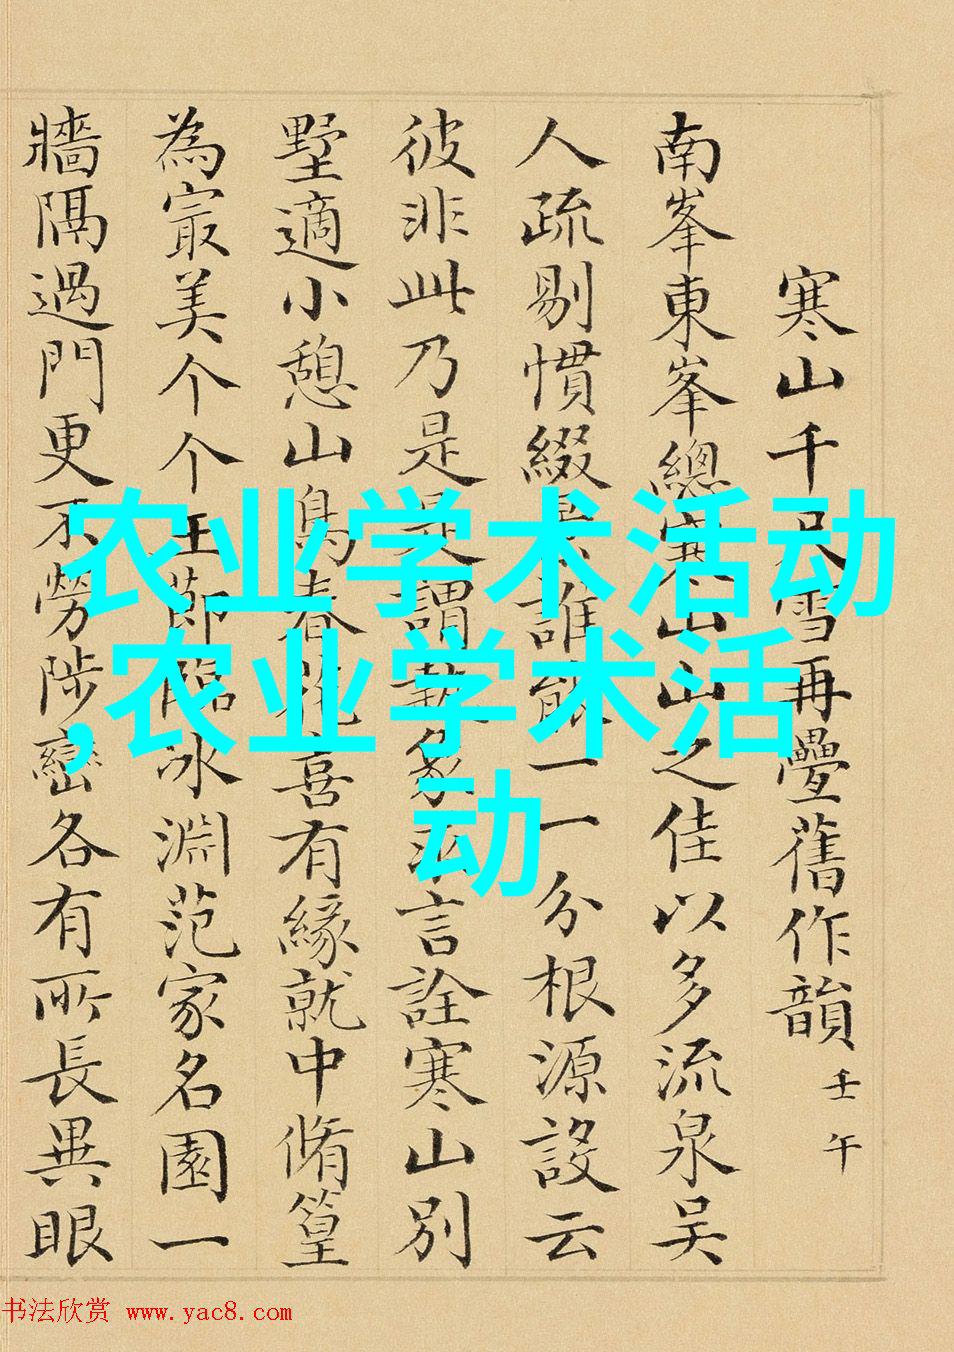 寒山千尺雪再疊舊作韻 壬午
南峯東峯總寒山山之佳以多流泉吴
人疏剔慣綴景誰能一一分根源設云
彼非此乃是是謂執象法言詮寒山別
墅適小憩山鳥春花喜有緣就中脩篁
為最美个个玉節臨冰淵范家名園一
牆隔過門更不勞陟巒各有所長異眼
农业学术活动
,农业学术活
动
书法欣赏 www.yac8.com